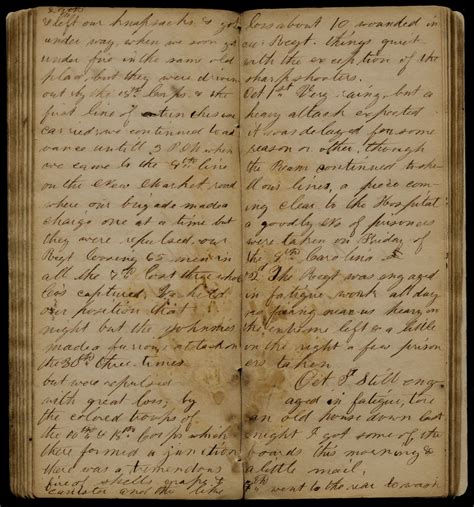 & left our knapsacks & got
under way, when we soon got
under fire in the same old
place, but they were driven
out by the 18th Corps & the
first line of entrenchment
carried, we continued to ad
vance untill 3 P.M. when
we came to the line
on the New Market road
where our brigade made a
charge one at a time but
they were repulsed, our
Regt loosing 65 men in
all the 7th lost three whole
Co's captured. We held
our position that
night but the Johnnies
made a furious attack on
the three times
but were repulsed
with great loss, by
the colored troops of
the 10th & 18th Corps which
there formed a junction
there was a tremendous
fire of shells grape &
canister and the like
Loss about 10 wounded in
our Regt. things quiet
with the exception of the
sharpshooters.
Oct 1st Very rainy, but a
heavy attack expected
it was delayed for some
reason or other, though
the Rebs continued to shell
our lines, a piece com-
ing clear to the Hospital
a goodly No of prisoners
were taken on Friday of
the 8th Carolina
2d The Regt was engaged
in fatigue work all day
firing near us heavy on
the extreme left & a little
on the right a few prison
ers taken
Oct 3d Still eng
aged in fatigue, tore
an old house down last
night I got some of the
boards this morning &
a little mail,
went to the rear to wash